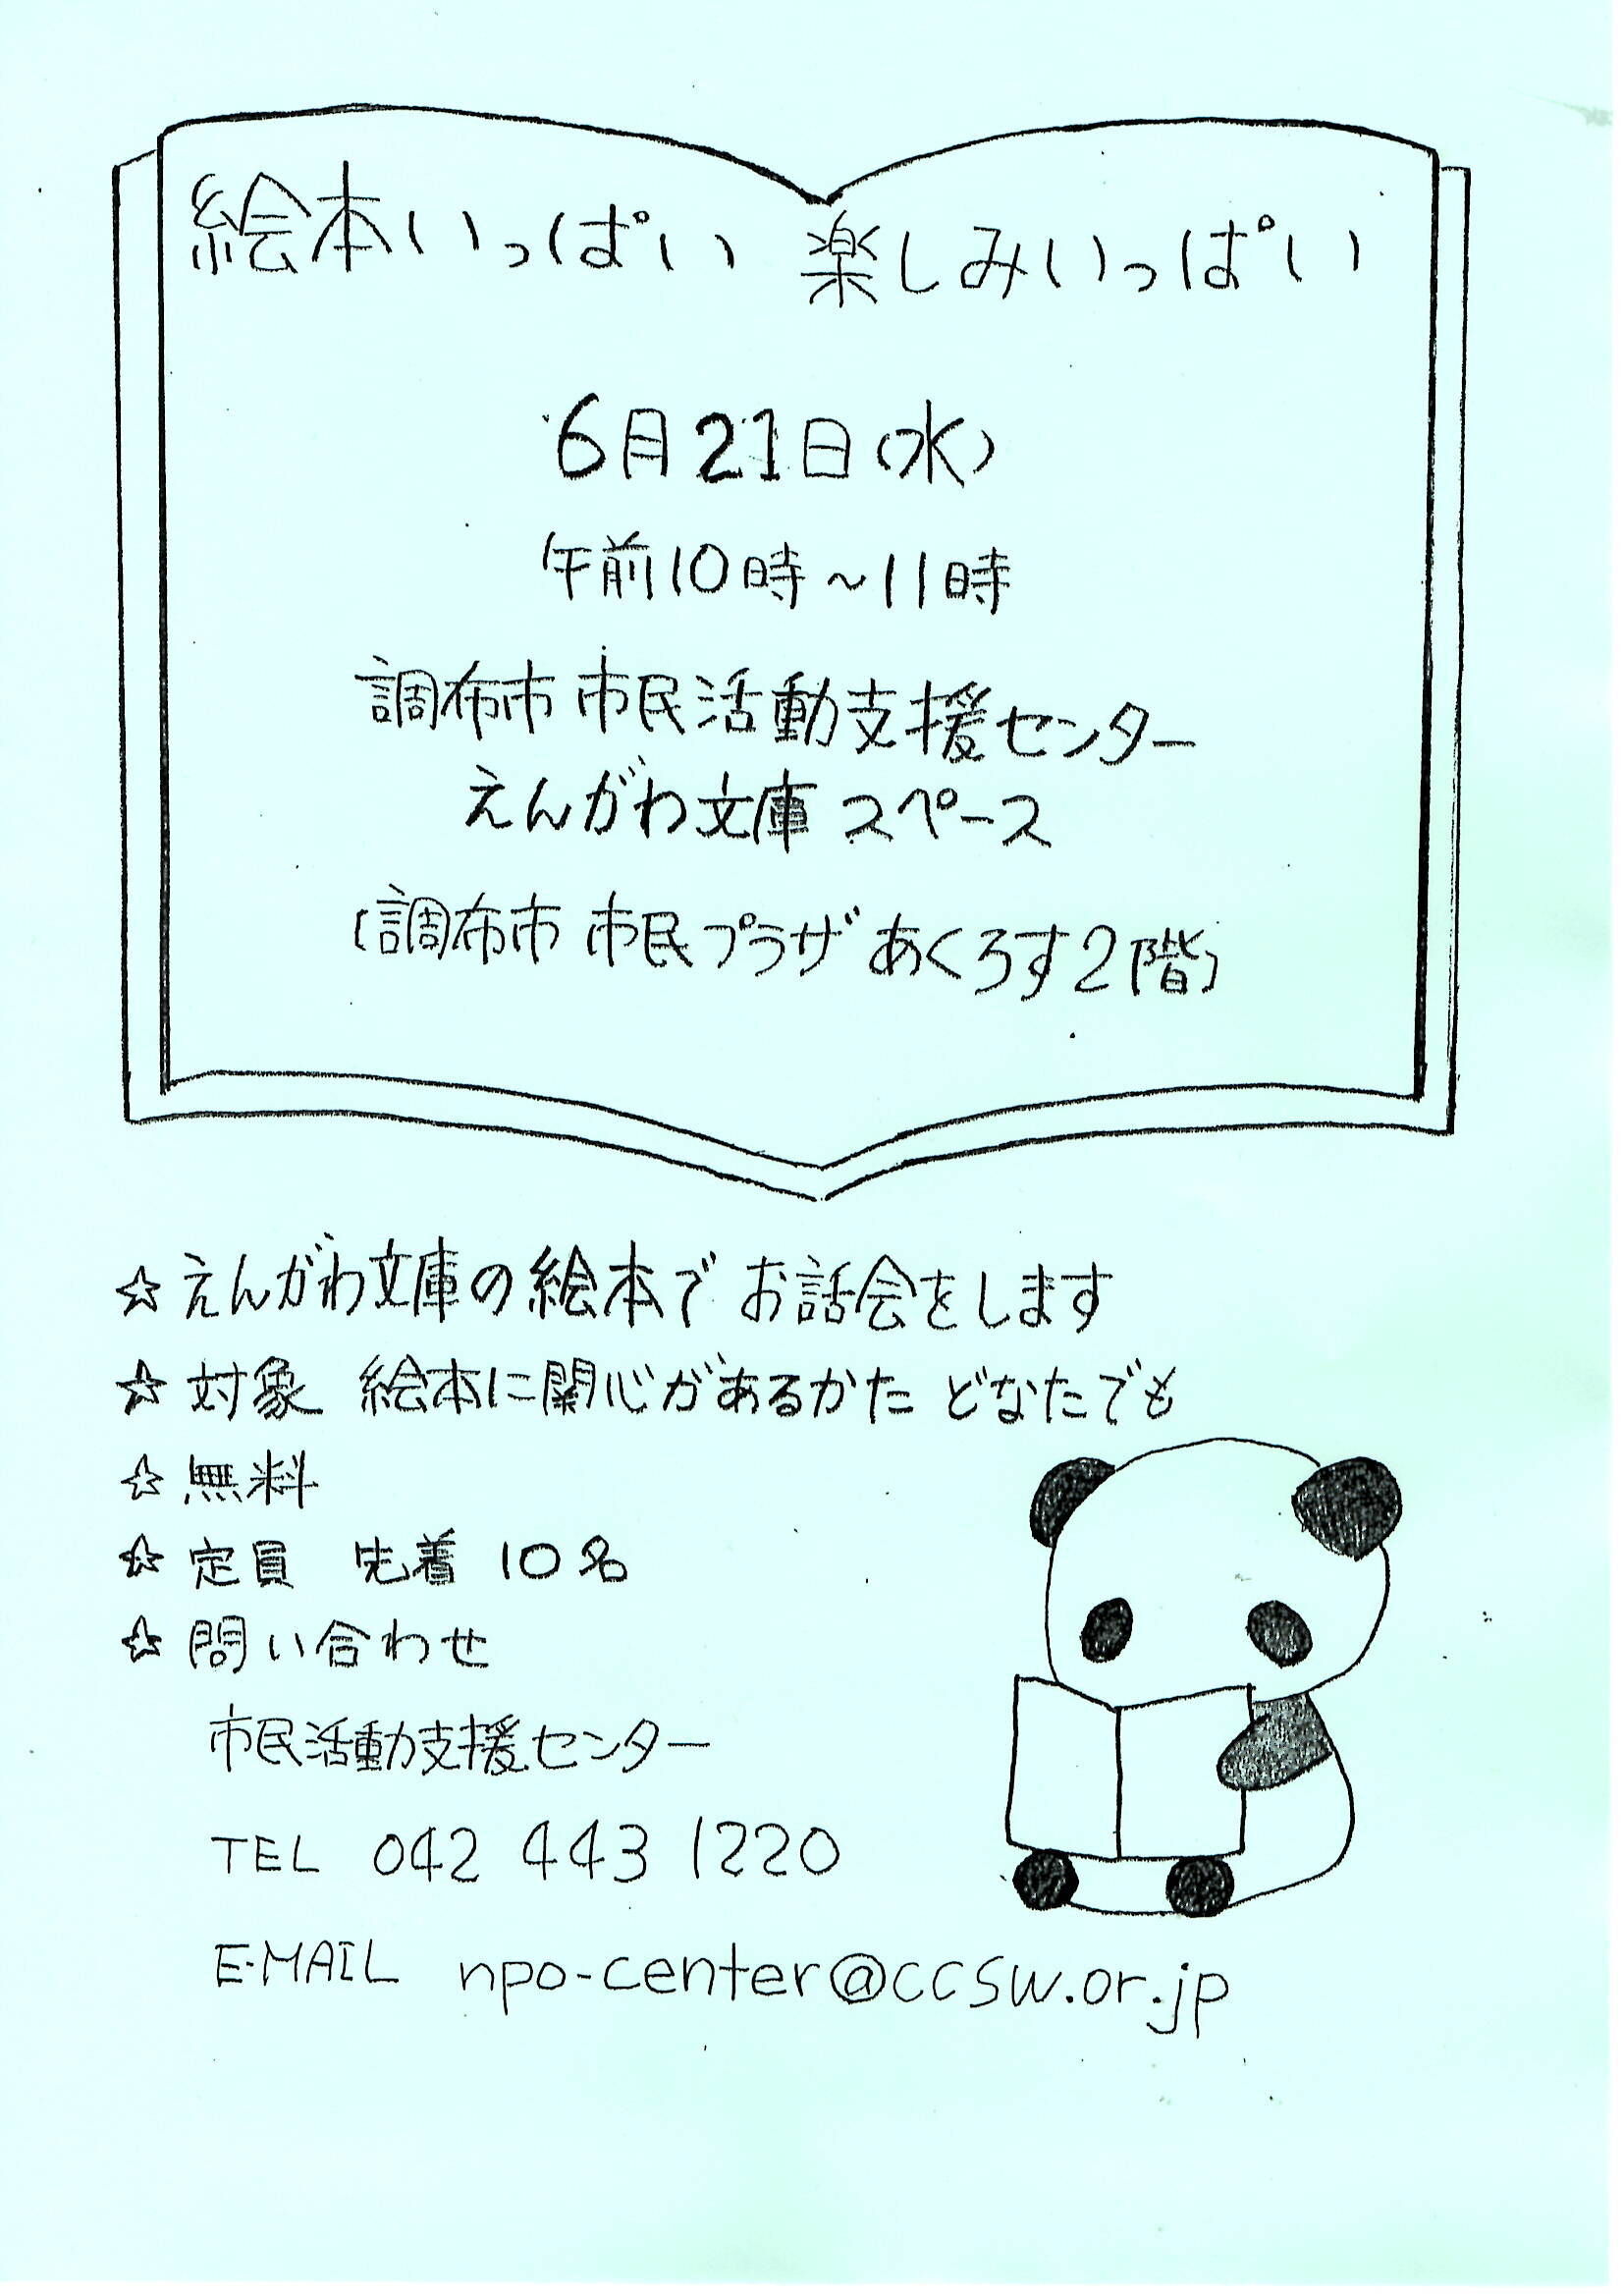 絵本いっぱい 楽しみいっぱい
6月21日(水)
午前10時~11時
調布市 市民活動支援センター
えんがわ文庫 スペース
(調布市 市民プラザ あくろす2階)
☆ えんがわ文庫の絵本で お話会をします
☆ 対象 絵本に関心があるかた どなたでも
☆ 無料
☆ 定員 先着 10名
☆ 問い合わせ
市民活動支援センター
TEL 042 443 1220
E-MAIL npo-center@ccsw.or.jp